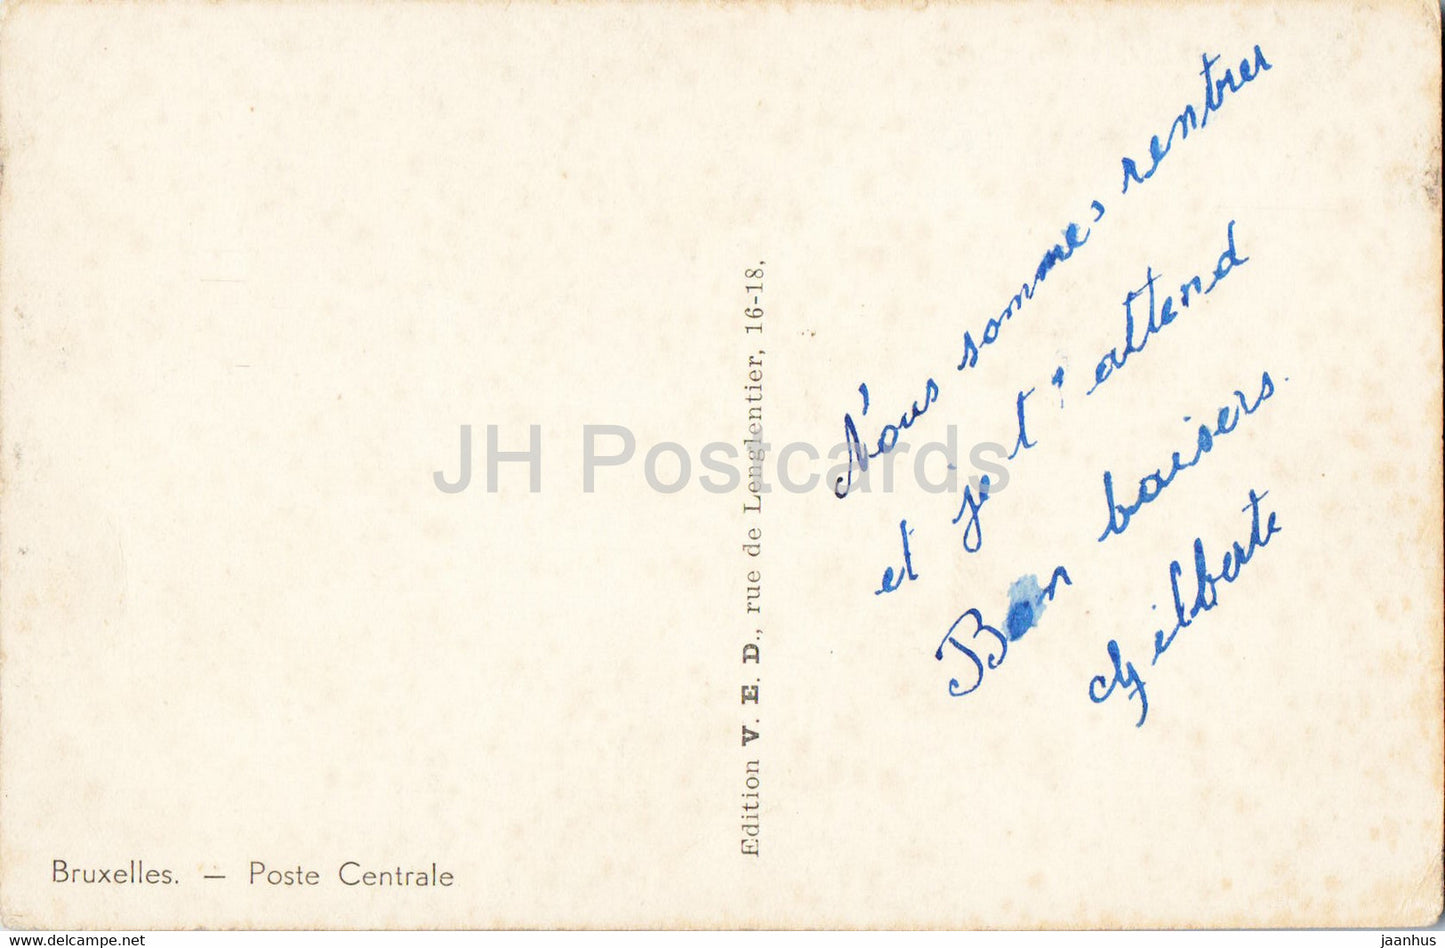 Nous sommes rentrer
et je t'attend
Bon baisers.
Gilberte
Edition V. E. D., rue de Lenglentier, 16-18,
Bruxelles. — Poste Centrale
JH Postcards
www.delcampe.net
jaanhus